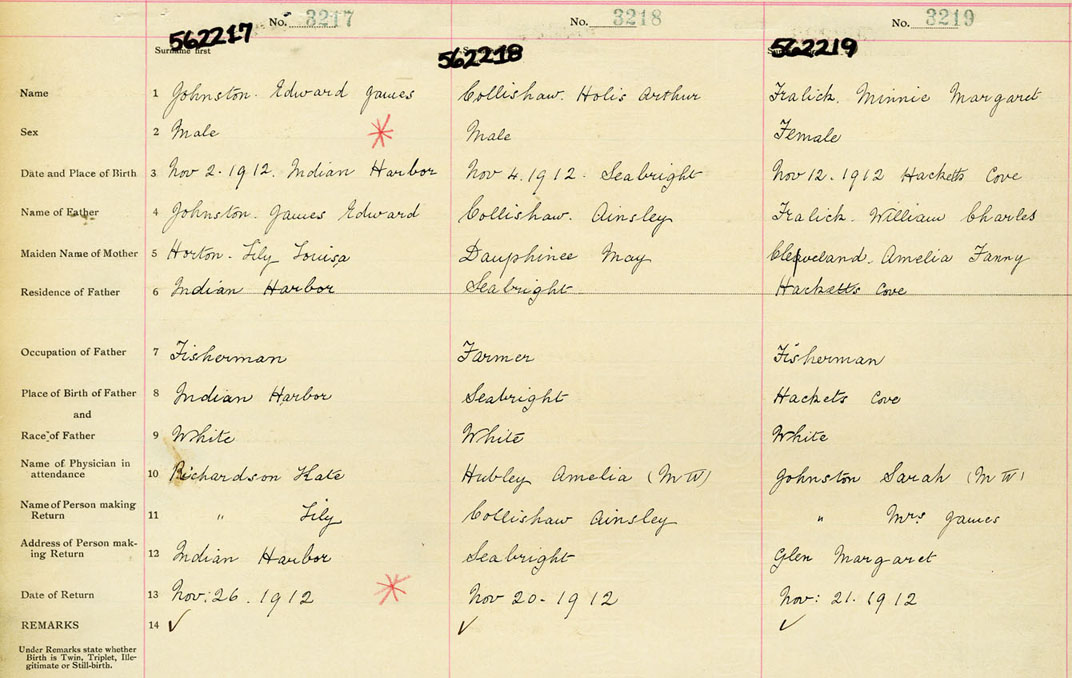 No. 3217 No. 3218 No. 3219
562217 562218 562219
Surname first
Name 1 Johnston. Edward James Collishaw. Holis Arthur Fralick. Minnie Margaret
Sex 2 Male Male Female
Date and Place of Birth 3 Nov 2. 1912. Indian Harbor Nov 4. 1912. Seabright Nov 12. 1912 Hacketts Cove
Name of Father 4 Johnston. James Edward Collishaw. Ainsley Fralick. William Charles
Maiden Name of Mother 5 Horton. Lily Louisa Dauphinee May Cleveland. Amelia Fanny
Residence of Father 6 Indian Harbor Seabright Hacketts Cove
Occupation of Father 7 Fisherman Farmer Fisherman
Place of Birth of Father 8 Indian Harbor Seabright Hackets Cove
and
Race of Father 9 White White White
Name of Physician in
attendance 10 Richardson Kate Hubley Amelia (MW) Johnston Sarah (MW)
Name of Person making
Return 11 " Lily Collishaw Ainsley " Mrs James
Address of Person mak-
ing Return 12 Indian Harbor Seabright Glen Margaret
Date of Return 13 Nov: 26. 1912 Nov 20-1912 Nov: 21. 1912
REMARKS 14 ✓ ✓ ✓
Under Remarks state whether
Birth is Twin, Triplet, Ille-
gitimate or Still-birth.